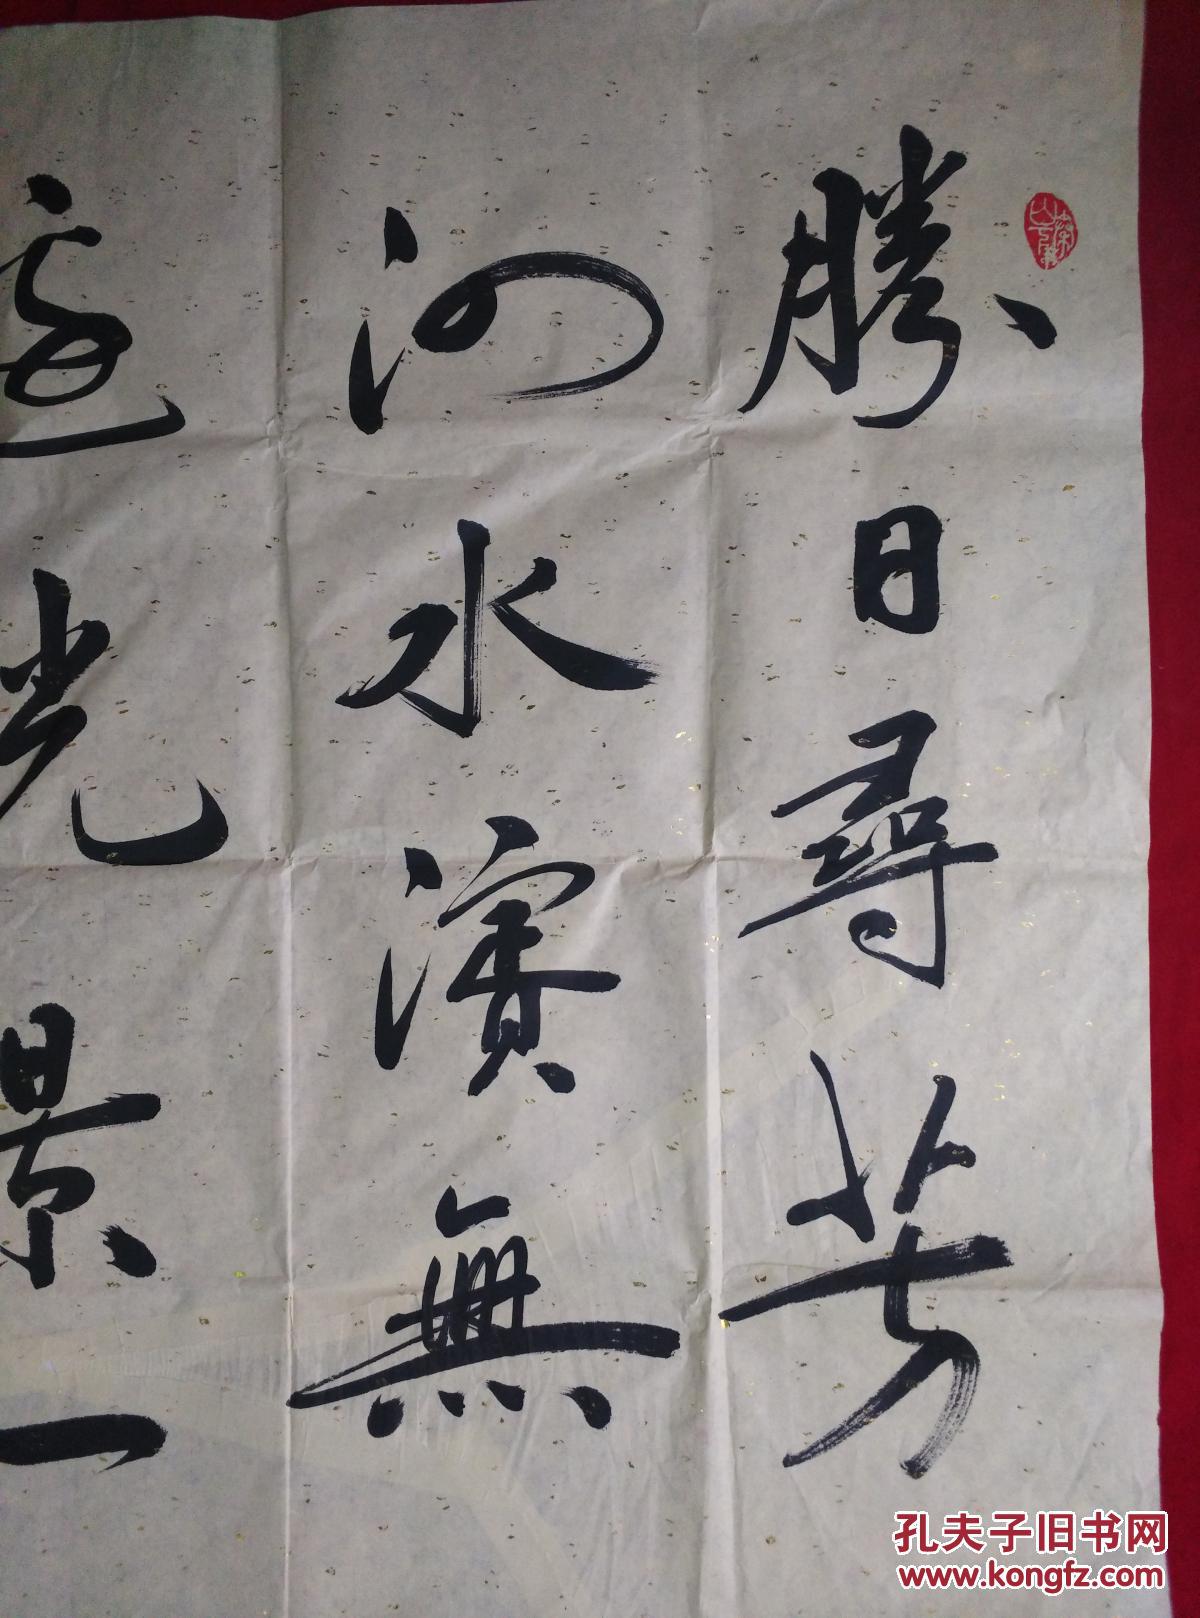 勝日尋芳
泗水濱無
邊光景一
孔夫子旧书网
www.kongfz.com